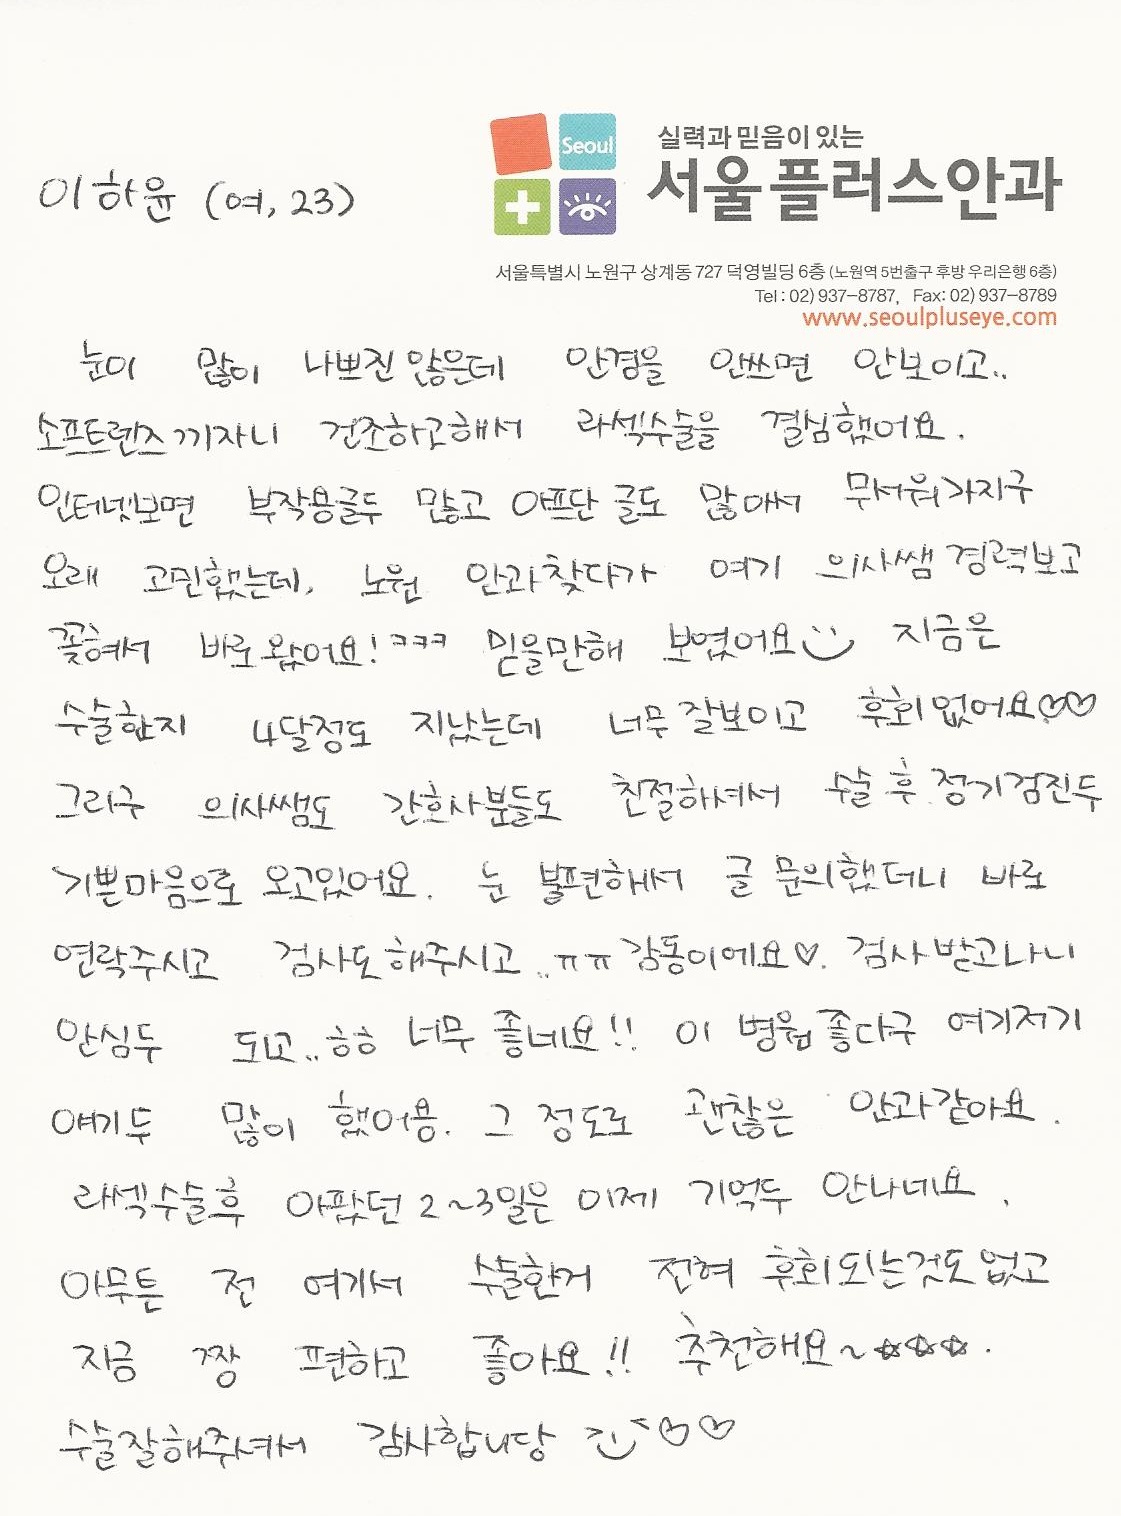 Seoul
실력과 믿음이 있는
서울플러스안과
이하윤 (여, 23)
서울특별시 노원구 상계동 727 덕영빌딩 6층 (노원역 5번출구 후방 우리은행 6층)
Tel : 02) 937-8787, Fax: 02) 937-8789
www.seoulpluseye.com
눈이 많이 나쁘진 않은데 안경을 안쓰면 안보이고..
소프트렌즈끼자니 건조하고해서 라섹수술을 결심했어요.
인터넷보면 부작용글두 많고 아프단 글도 많아서 무서워가지구
오래 고민했는데, 노원 안과찾다가 여기 의사쌤 경력보고
꽂혀서 바로왔어요! ㅋㅋㅋ 믿을만해 보였어요 지금은
수술한지 4달정도 지났는데 너무 잘보이고 후회없어요♡♡
그리구 의사쌤도 간호사분들도 친절하셔서 수술 후 정기검진두
기쁜마음으로 오고있어요. 눈 불편해서 글 문의했더니 바로
연락주시고 검사도해주시고..ㅠㅠ 감동이에요♡. 검사받고나니
안심두 되고..ㅎㅎ 너무 좋네요!! 이 병원좋다구 여기저기
얘기두 많이 했어용. 그 정도로 괜찮은 안과같아요.
라섹수술후 아팠던 2~3일은 이제 기억두 안나네요.
아무튼 전 여기서 수술한거 전혀 후회되는것도없고
지금 짱 편하고 좋아요!! 추천해요~☆☆☆.
수술잘해주셔서 감사합니당 ♡♡